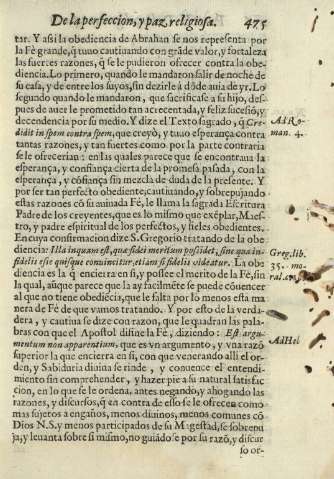 De la perfeccion, y paz religiosa. 475
tar. Y asi la obediencia de Abrahan se nos representa por
la Fè grande, q̃ tuuo cautiuando con grãde valor, y fortaleza
las fuertes razones, q̃ se le pudieron ofrecer contra la obe-
diencia. Lo primero, quando le mandaron salir de noche de
su casa, y de entre los suyos, sin dezirle à dõde auia de yr. Lo
segundo quando le mandaron, que sacrificase a su hijo, des-
pues de auerle prometido tan acrecentada, y feliz sucesiõ, y
decendencia por su medio. Y dize el Texto sagrado, q̃ Cre-
didit in spem contra spem, que creyò, y tuuo esperança contra
tantas razones, y tan fuertes como por la parte contraria
se le ofrecerian: en las quales parece que se encontraua la
esperança, y confiança cierta de la promesa pasada, con la
esperança, y cõfiança sin mezcla de duda de la presente. Y
por ser tan perfecto obediente, cautiuando, y sobrepujando
estas razones cõ su animada Fè, le llama la sagrada Escritura
Padre de los creyentes, que es lo mismo que exẽplar, Maes-
tro, y padre espiritual de los perfectos, y fieles obedientes.
En cuya confirmacion dize S. Gregorio tratando de la obe-
diencia: Illa inquam est, qua fidei meritum possidet, sine qua in-
fidelis esse quisque convincitur, etiam si fidelis videatur. La obe-
diencia es la q̃ encierra en si, y possee el merito de la Fè, sin
la qual, aũque parece que la ay facilmẽte se puede cõuencer
al que no tiene obediẽcia, que le falta por lo menos esta ma-
nera de Fè de que vamos tratando. Y por esto de la verda-
dera, y cautiua se dize con razon, que le quadran las pala-
bras con que el Apostol difine la Fè, diziendo: Est argu-
mentum non apparentium, que es vn argumento, y vna razõ
superior la que encierra en si, con que venerando alli el or-
den, y Sabiduria diuina se rinde, y conuence el entendi-
miento sin comprehender, y hazer pie a su natural satisfac-
cion, en lo que se le ordena, antes negando, y ahogando las
razones, y discursos, q̃ en contra de esso se le ofrecen como
mas sujetos a engaños, menos diuinos, menos comunes cõ
Dios N.S. y menos participados de su Magestad, se sobrepu
ja, y leuanta sobre si mismo, no guiãdose por su razõ, y discur
so or-
Ad Ro-
man. 4.
Greg. lib.
35. mo-
ral.
Ad Heb